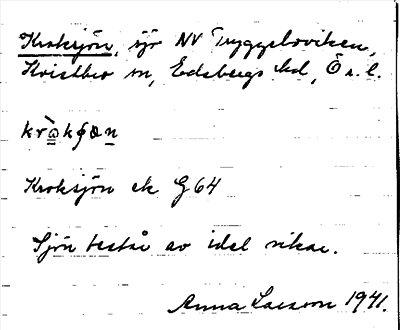 Kroksjön, sjö NV Tryggeboviken,
Kvistbro sn, Edsbergs hd, Ö r. l.
Kroksjön ek G 64
Sjön består av idel vikar.
Anna Larsson 1941.